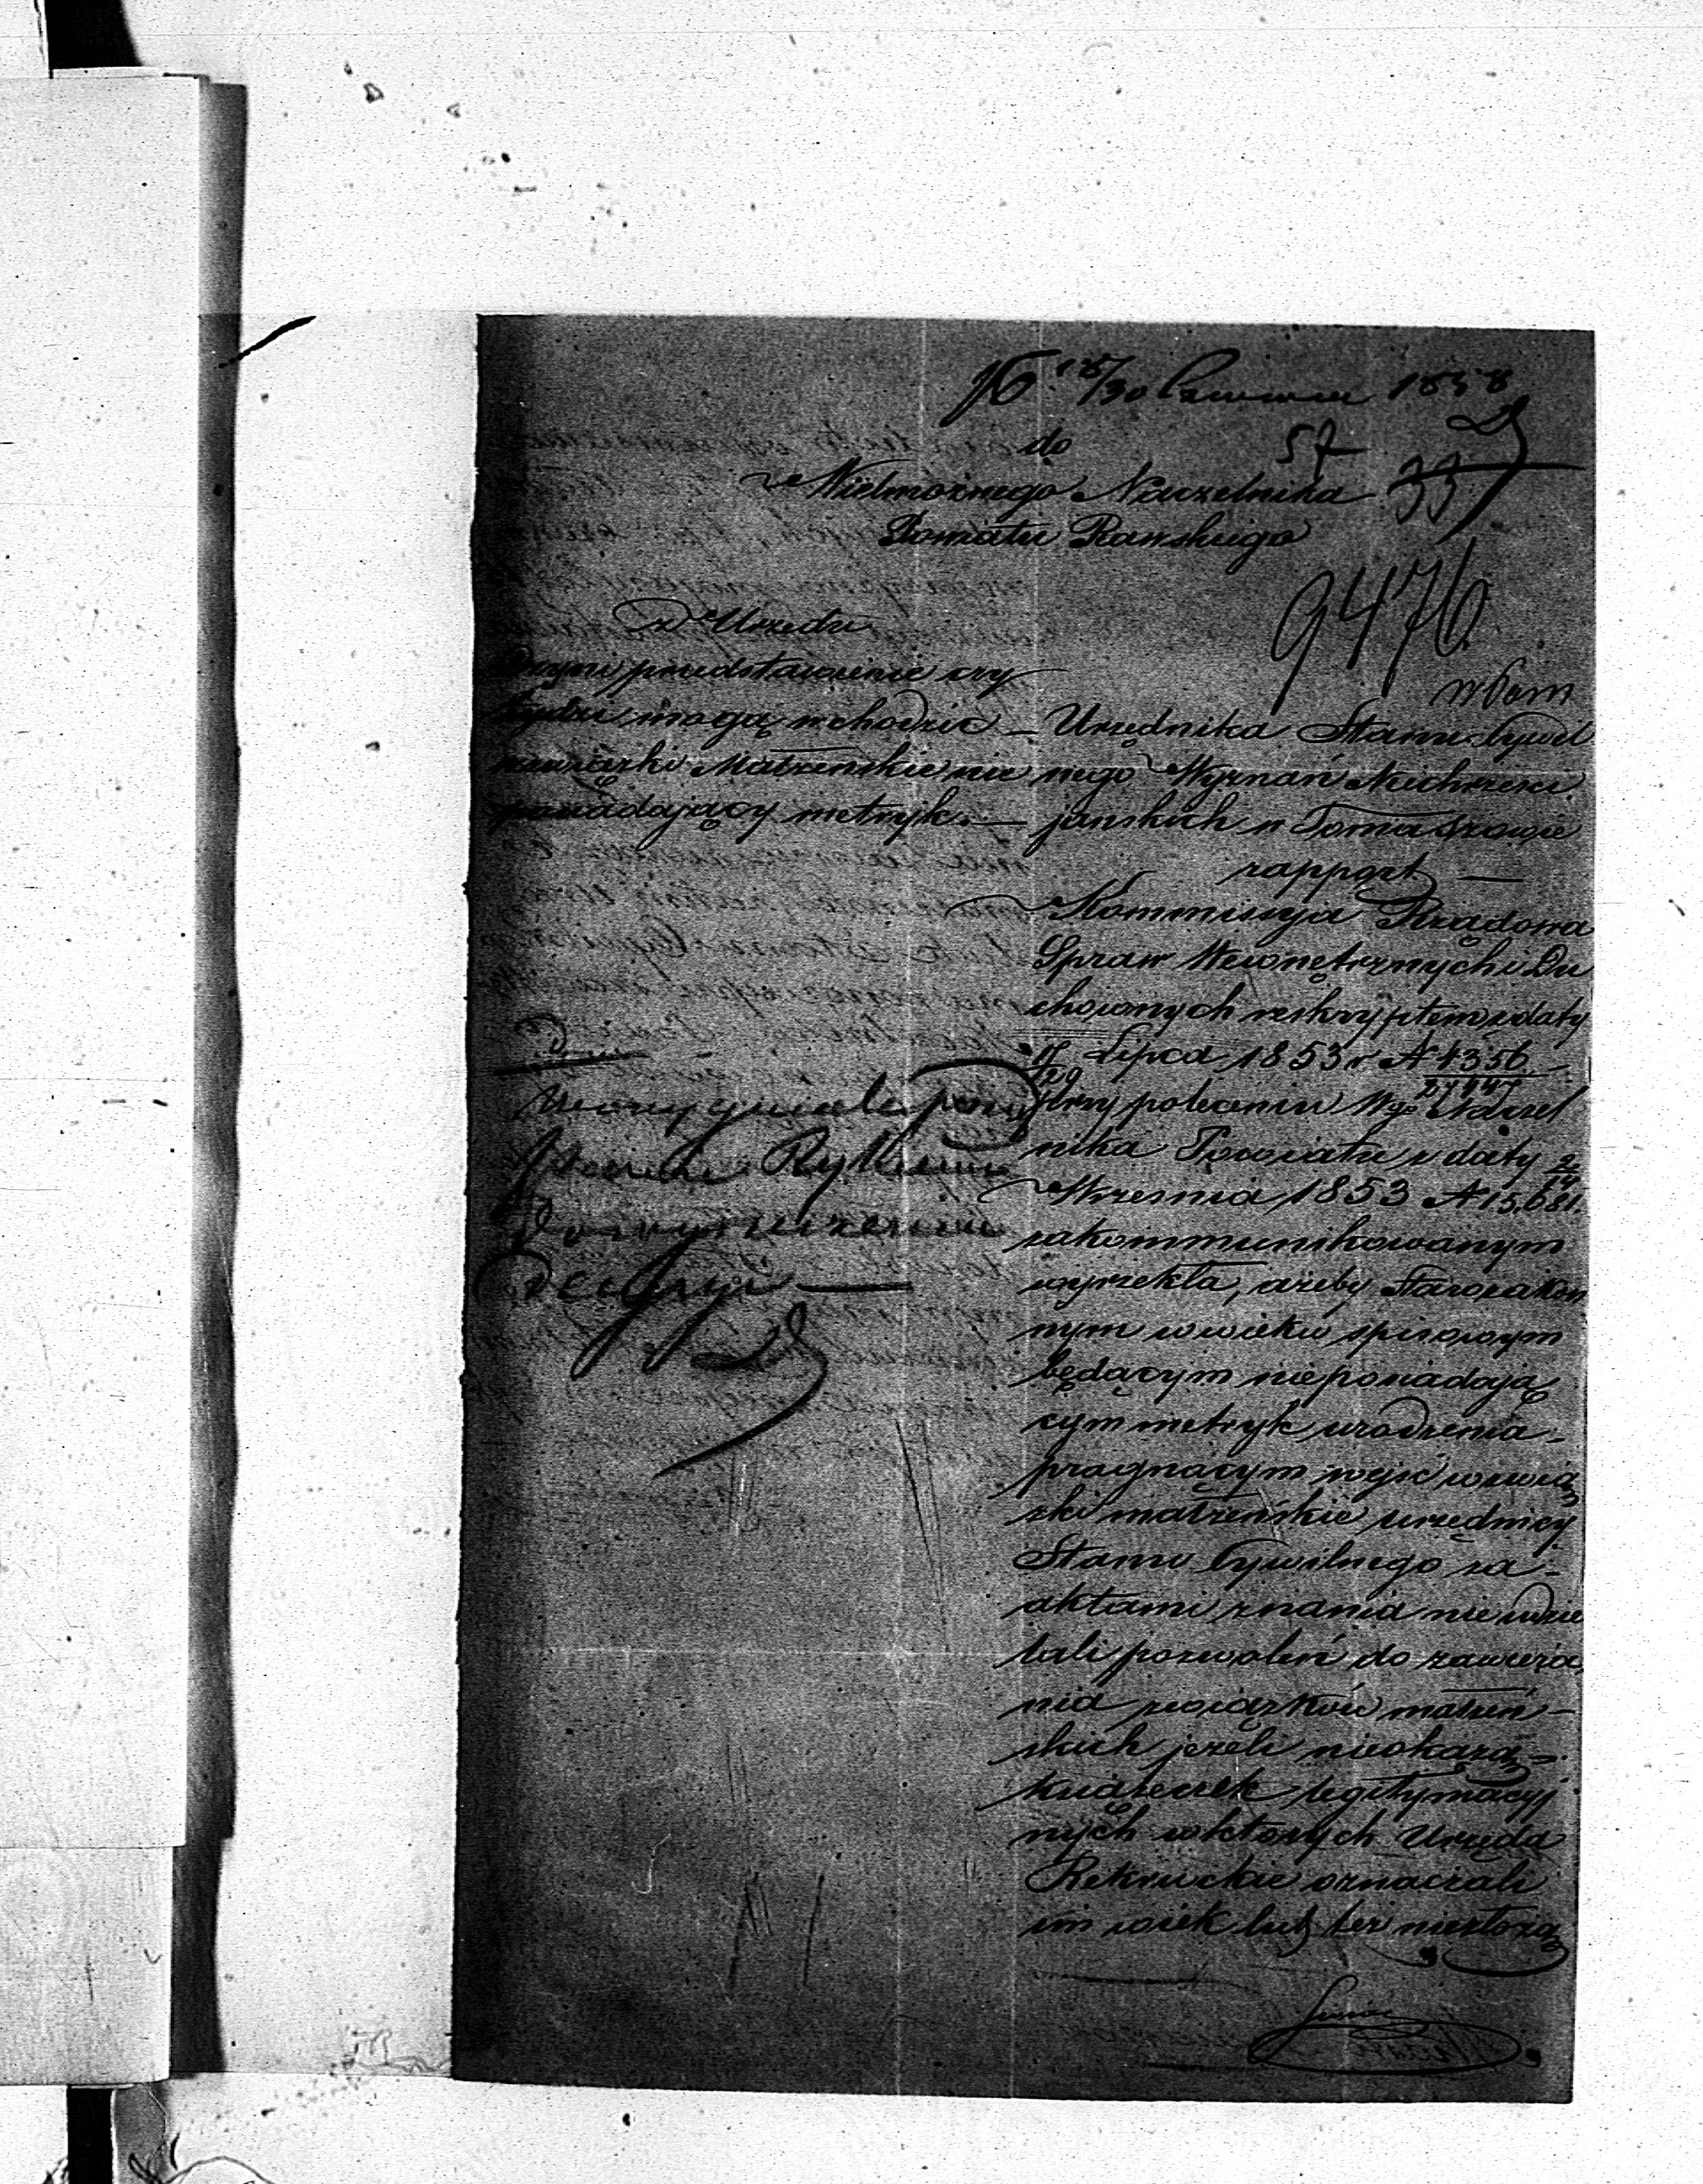 18/30 Czerwca 1858
do 57
Wielmożnego Naczelnika 33
Powiatu Rawskiego
9476
z Urzędu
czyni przedstawienie czy
żydzi mogą wchodzić —
w związki Małżeńskie nie
posiadający metryk. —
Urzędnika Stanu Cywil
nego Wyznań Niechrześci
jańskich w Tomaszowie
rapport —
Kommissyja Rządowa
Spraw Wewnętrznych i Du
chownych reskryptem z daty
17/29 Lipca 1853 r N 4356/27447
przy poleceniu Wgo Naczel
nika Powiatu z daty 2/14
Września 1853 N 15,681.
zakommunikowanym
wyrzekła, ażeby Starozakon
nym w wieku spisowym
będącym nieposiadają
cym metryk urodzenia -
pragnącym wejść w zwią
zki małżeńskie urzędnicy
Stanu Cywilnego za -
aktami znania nie udzie
lali pozwoleń do zawiera
nia związków małżeń -
skich jeżeli nieokażą =
książeczek legitymacyj
nych w których Urzęda
Rekruckie oznaczali
im wiek lub też niezłożą